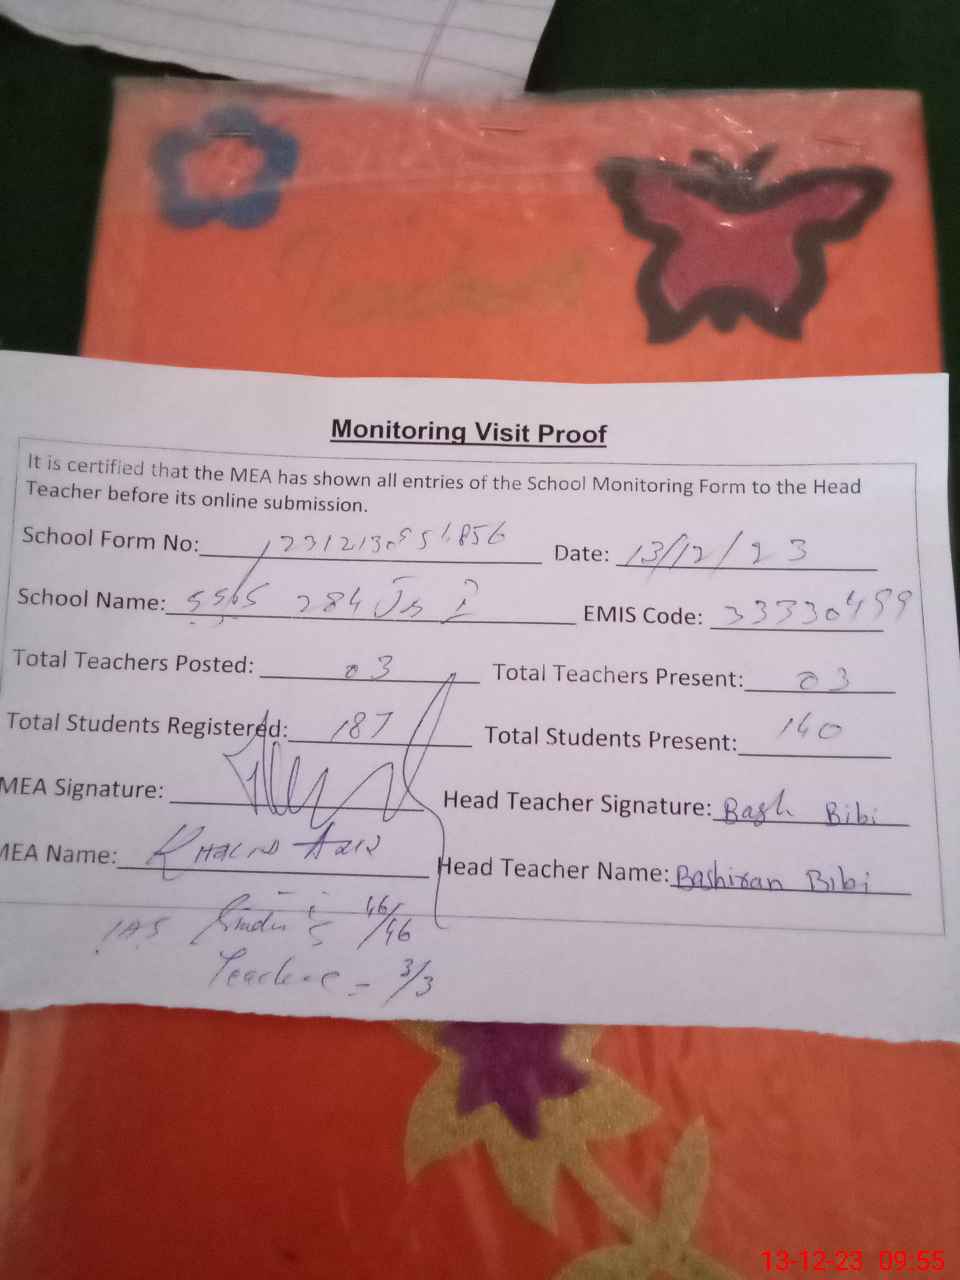 Monitoring Visit Proof
It is certified that the MEA has shown all entries of the School Monitoring Form to the Head
Teacher before its online submission.
School Form No: Date: 13/12/23
School Name: 284 EMIS Code: 33330499
Total Teachers Posted: 03 Total Teachers Present: 03
Total Students Registered: 187 Total Students Present: 140
MEA Signature: Head Teacher Signature: Bash Bibi
MEA Name: Head Teacher Name: Bashiran Bibi
46/46
3/3
13-12-23 09:55